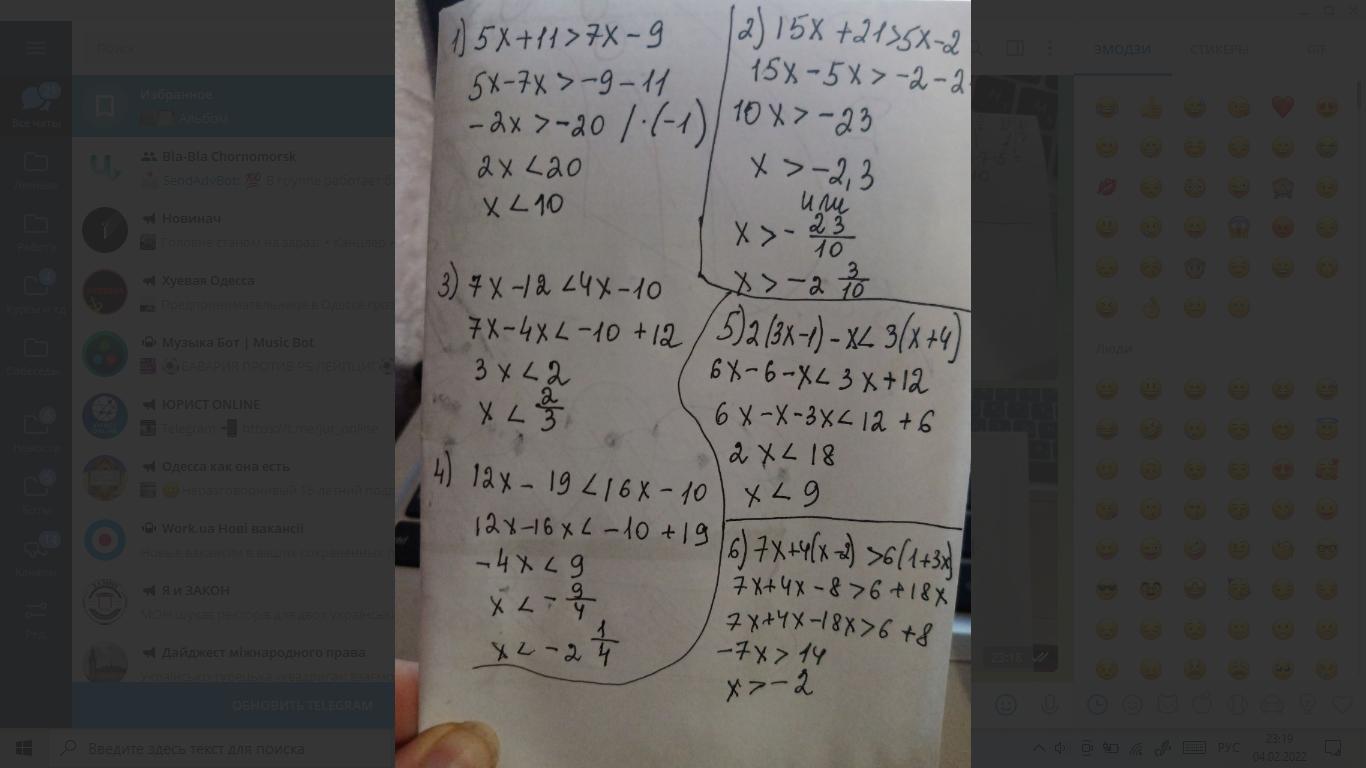 Поиск
Все чаты
Личные
Работу
Новости
Боты
Каналы
Ред.
Избранное
Альбом
Bla-Bla Chornomorsk
SendAdvBot: 💯 В группе работает б
Новинач
Головне станом на зараз: • Канцлер
Хуевая Одесса
Музыка Бот | Music Bot
⚽БАВАРИЯ ПРОТИВ РБ ЛЕЙПЦИГ⚽
ЮРИСТ ONLINE
Telegram 📲 https://t.me/jur_online
Одесса как она есть
Неразговорчивый 15-летний под
Work.ua Нові вакансії
Новые вакансии в ваших сохраненных п
Я и ЗАКОН
МОН шукає ректорів для двох українськ
Дайджест міжнародного права
ОБНОВИТЬ TELEGRAM
1) 5x+11>7x-9
5x-7x>-9-11
-2x>-20 /·(-1)
2x<20
x<10
2) 15x+21>5x-2
15x-5x>-2-2
10x>-23
x>-2,3
или
x>-23/10
x>-2 3/10
3) 7x-12<4x-10
7x-4x<-10+12
3x<2
x<2/3
4) 12x-19<16x-10
12x-16x<-10+19
-4x<9
x<-9/4
x<-2 1/4
5) 2(3x-1)-x<3(x+4)
6x-6-x<3x+12
6x-x-3x<12+6
2x<18
x<9
6) 7x+4(x-2)>6(1+3x)
7x+4x-8>6+18x
7x+4x-18x>6+8
-7x>14
x>-2
23:18
ЭМОДЗИ
СТИКЕРЫ
GIF
Люди
Введите здесь текст для поиска
РУС
23:19
04.02.2022